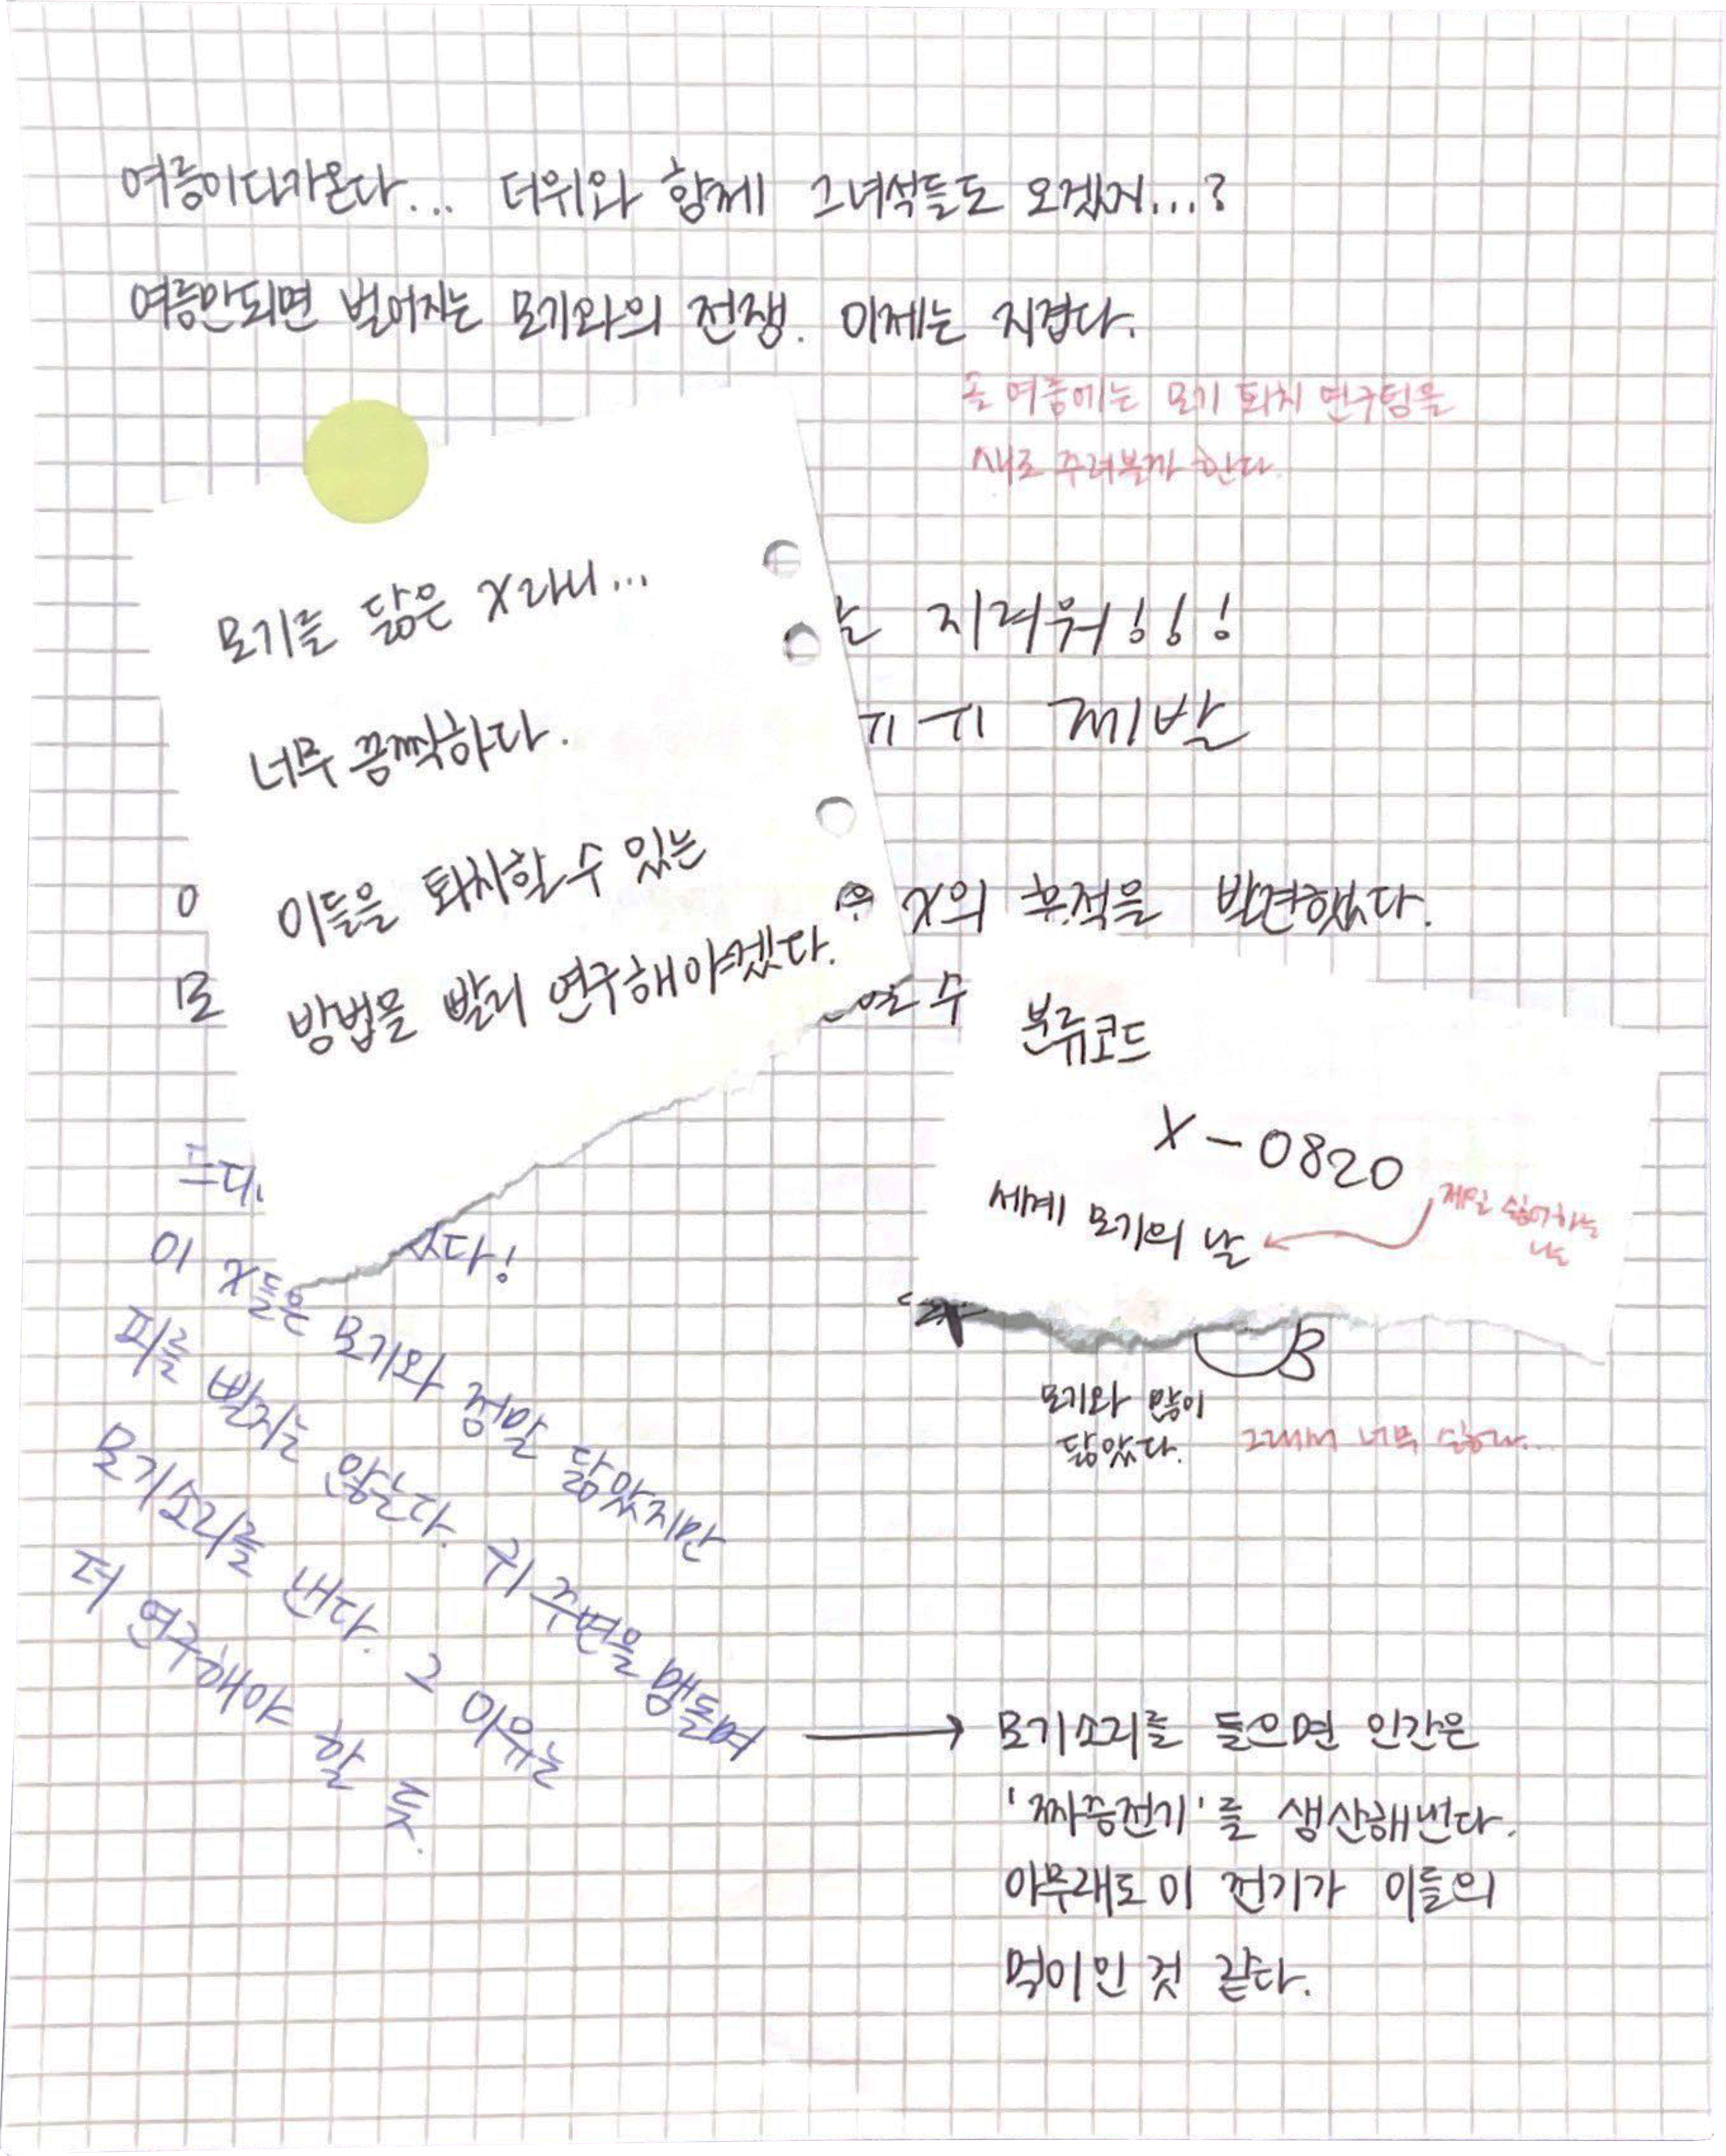 여름이다가온다... 더위와 함께 그녀석들도 오겠지...?
여름만되면 벌어지는 모기와의 전쟁. 이제는 지겹다.
올 여름에는 모기 퇴치 연구팀을
새로 꾸려볼까 한다.
모기를 닮은 X라니...
너무 끔찍하다.
이들을 퇴치할 수 있는
방법을 빨리 연구해야겠다.
지겨워!!!
제발
X의 흔적을 발견했다.
수
분류코드
X-0820
세계 모기의 날
제일 싫어하는
날
모기와 많이
닮았다.
그래서 너무 싫다...
이 X들은 모기와 정말 닮았지만
피를 빨지는 않는다. 귀 주변을 맴돌며
모기소리를 낸다. 그 이유는
더 연구해야 할 듯.
모기소리를 들으면 인간은
'짜증전기'를 생산해낸다.
아무래도 이 전기가 이들의
먹이인 것 같다.